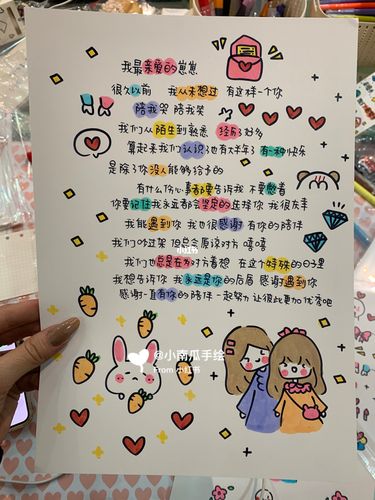 我最亲爱的崽崽
很久以前 我从未想过 有这样一个你
陪我哭 陪我笑
我们从陌生到熟悉 经历好多
算起来我们认识也有好多年了 有一种快乐
是除了你没人能够给予的
有什么伤心事都要告诉我 不要憋着
你要记住我永远都会坚定的选择你 我很庆幸
能遇到你 我也很感谢 有你的陪伴
我们吵过架 但总会原谅对方 嘻嘻
我们也总是在为对方着想 在这个特殊的日子里
我想告诉你 我永远是你的后盾 感谢遇到你
感谢一直有你的陪伴 一起努力 让彼此更加优秀吧
小红书
@小南瓜手绘
From 小红书